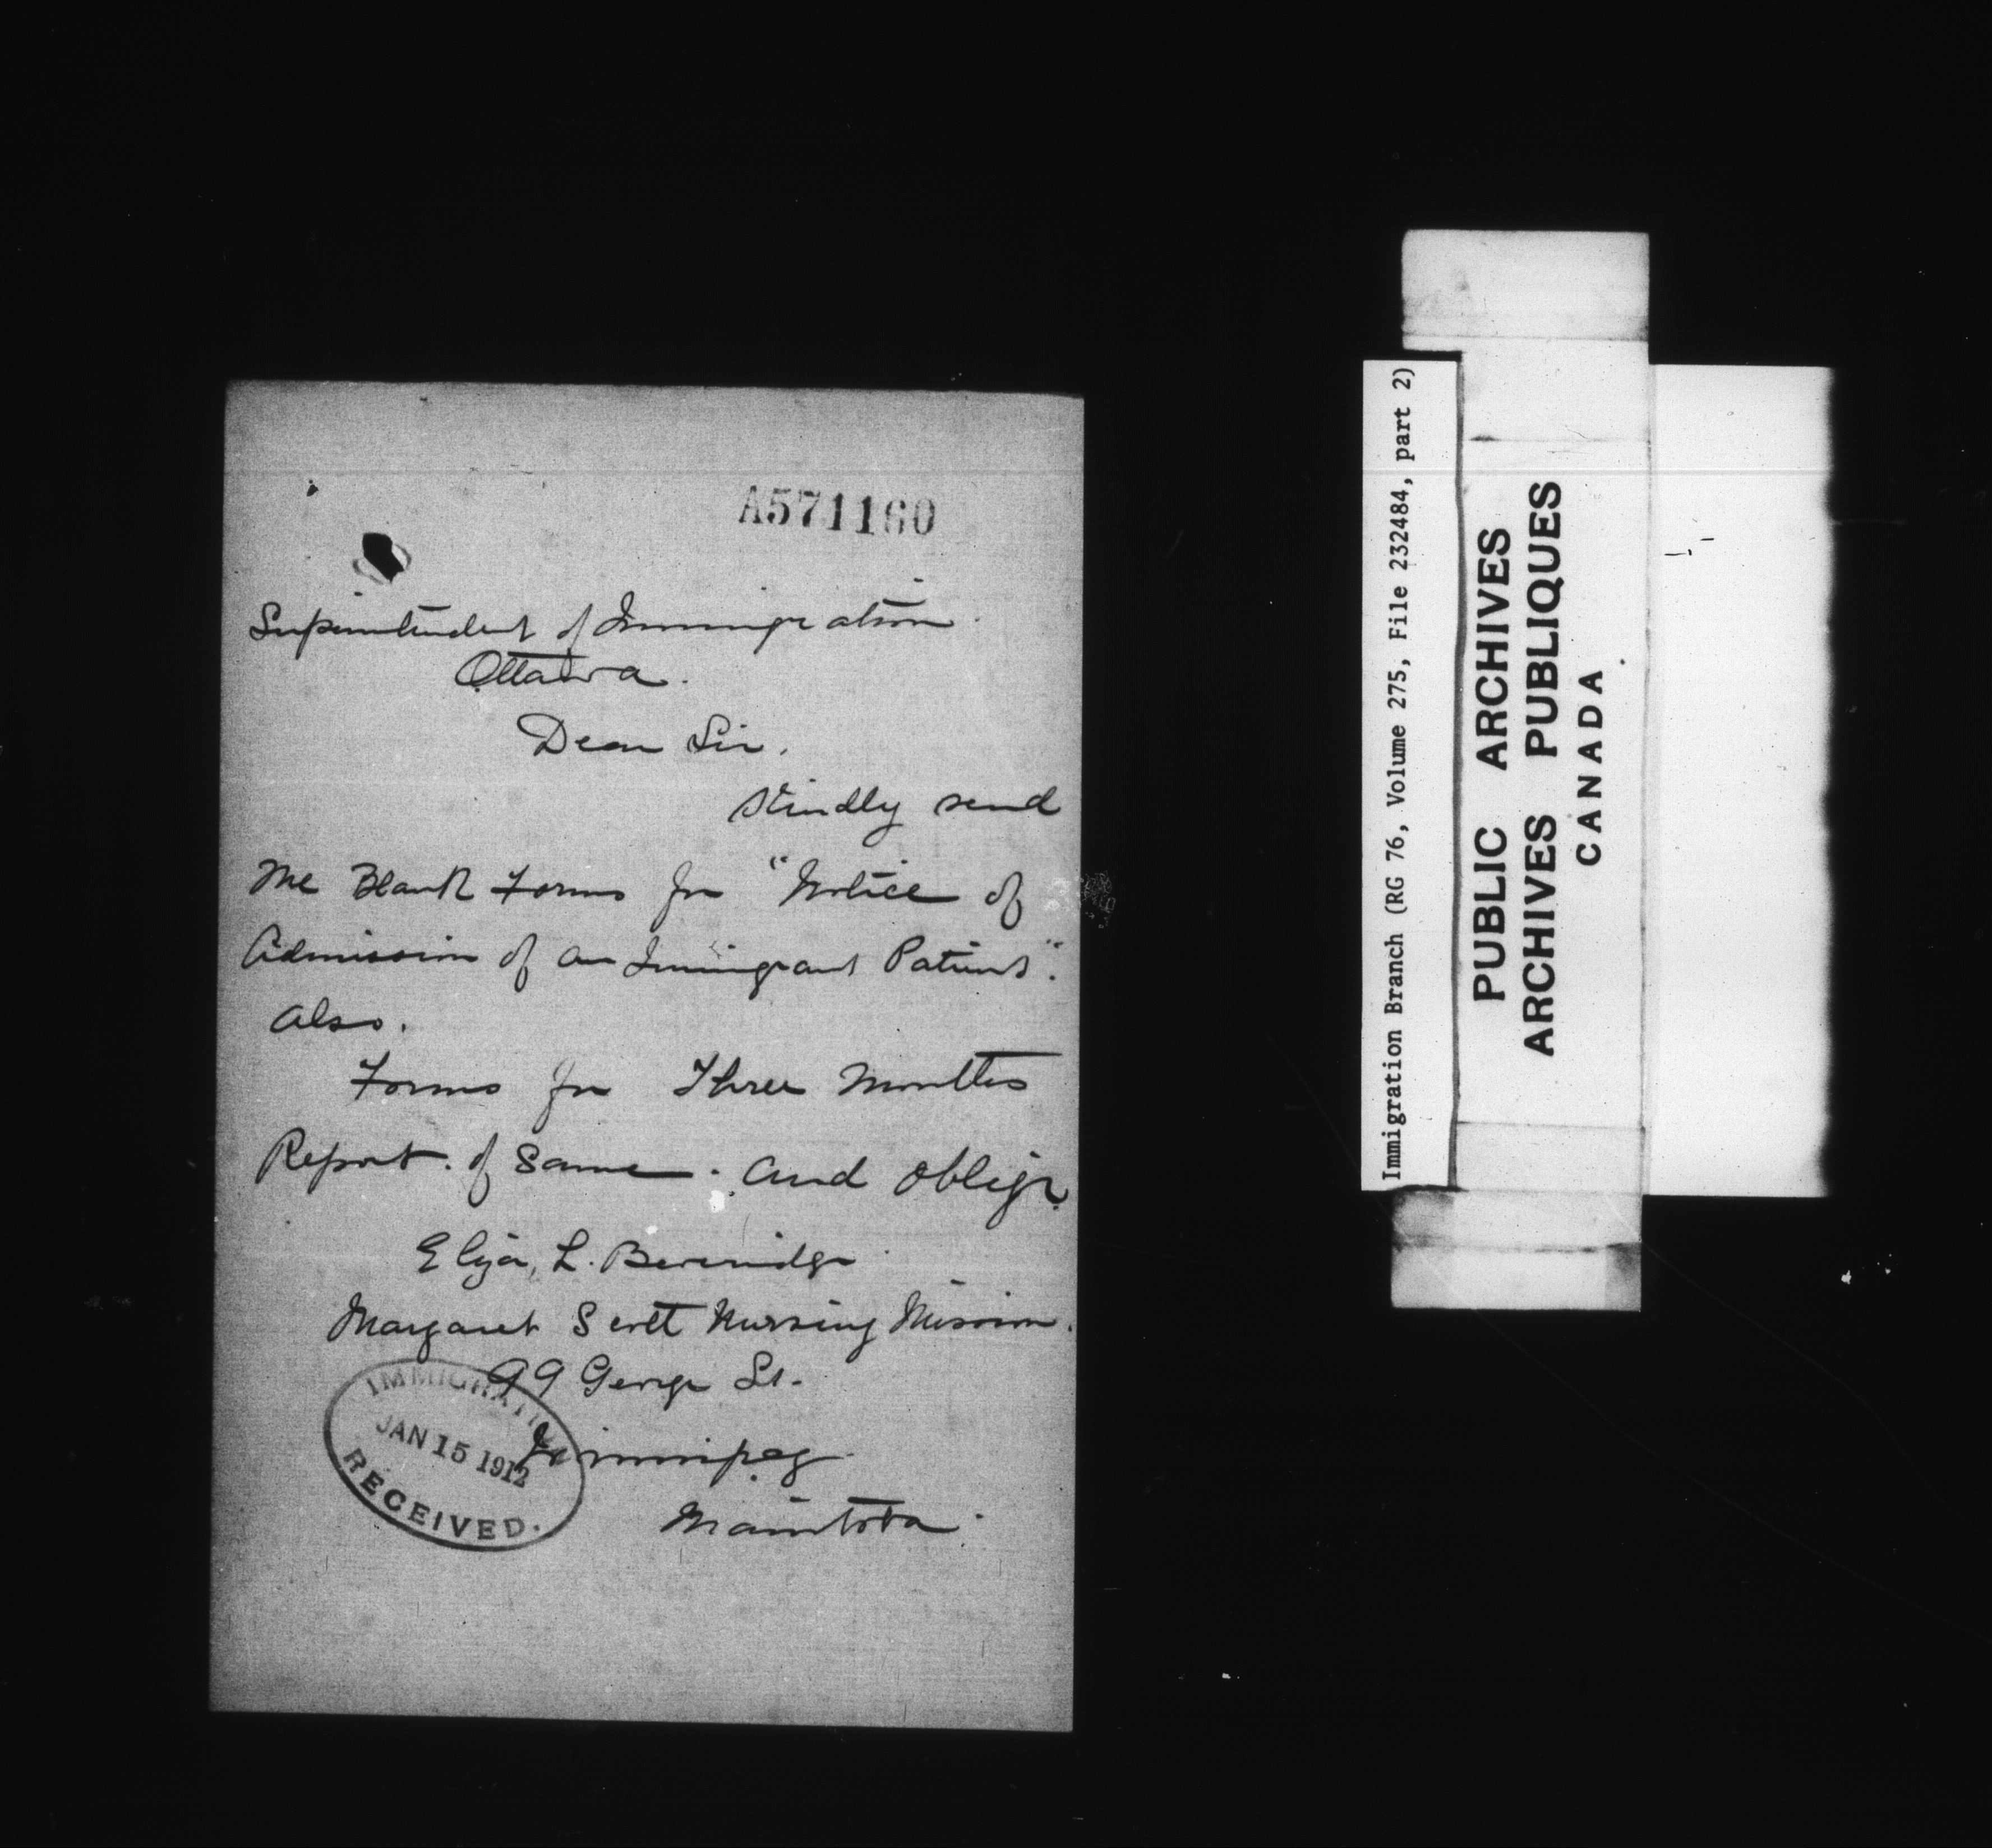 A571160
Superintendent of Immigration.
Ottawa.
Dear Sir.
Kindly send
me Blank Forms for "Notice of
Admission of an Immigrant Patient".
also.
Forms for Three Months
Report. of Same. and oblige
Eliza, L. Beveridge
Margaret Scott Nursing Mission.
99 George St.
Winnipeg.
Manitoba.
IMMIGRATION
JAN 15 1912
RECEIVED.
Immigration Branch (RG 76, Volume 275, File 232484, part 2)
PUBLIC ARCHIVES
ARCHIVES PUBLIQUES
CANADA